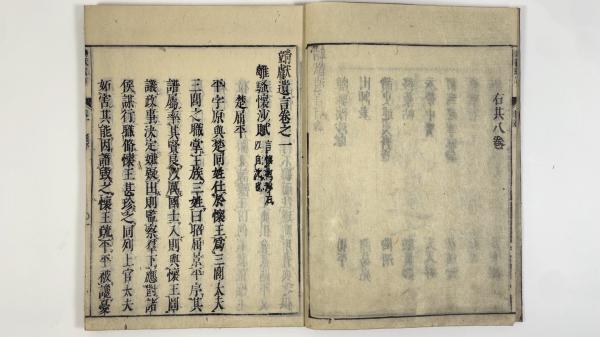 右共八卷
靖獻遺言卷之一
離騷懷沙賦
楚屈平
平字原與楚同姓仕於懷王爲三閭大夫
三閭之職掌王族三姓曰昭屈景平序其
譜屬率其賢良以厲國士入則與懷王圖
議政事決定嫌疑出則監察羣下應對諸
侯謀行職脩懷王甚珍之同列上官大夫
妬害其能因譖毀之懷王疏平平被讒憂